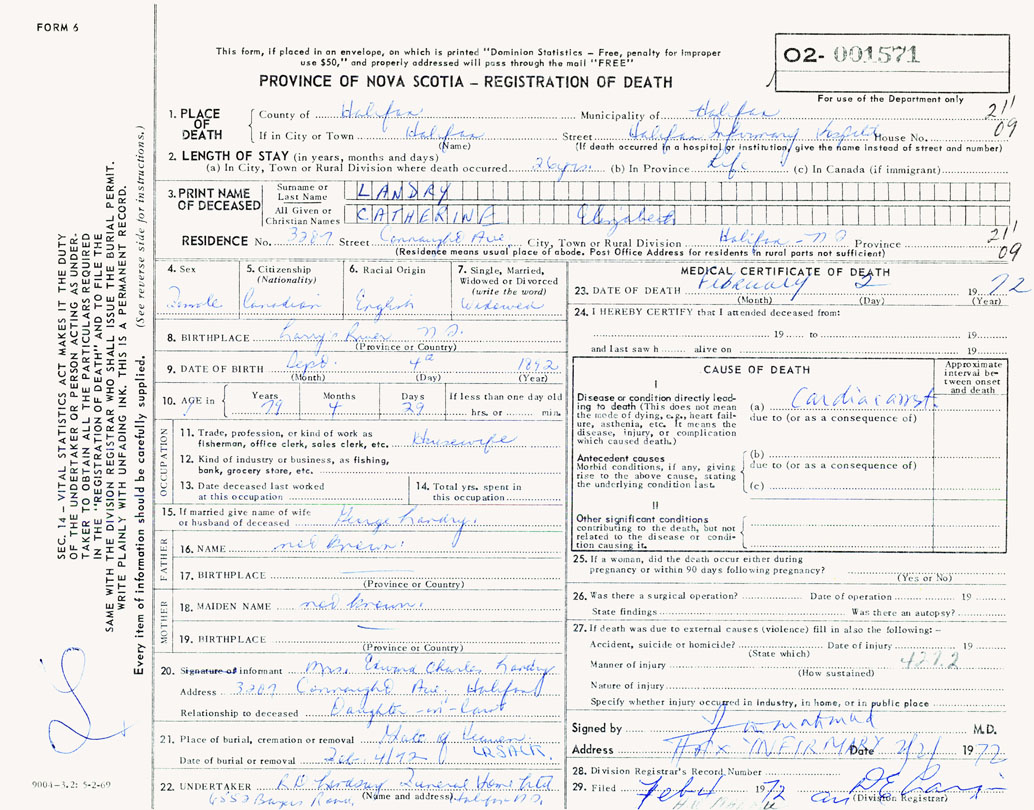 FORM 6
This form, if placed in an envelope, on which is printed "Dominion Statistics – Free, penalty for improper
use $50," and properly addressed will pass through the mail "FREE"
PROVINCE OF NOVA SCOTIA – REGISTRATION OF DEATH
02- 001571
For use of the Department only
1. PLACE OF DEATH
County of Halifax Municipality of Halifax 21'
If in City or Town Halifax Street Halifax Infirmary Hospital House No. 09
(Name) (If death occurred in a hospital or institution, give the name instead of street and number)
2. LENGTH OF STAY (in years, months and days)
(a) In City, Town or Rural Division where death occurred 26 yrs. (b) In Province Life (c) In Canada (if immigrant)
3. PRINT NAME OF DECEASED
Surname or Last Name LANDRY
All Given or Christian Names CATHERINE Elizabeth
RESIDENCE No. 3287 Street Connaught Ave. City, Town or Rural Division Halifax - N.S. Province 21'
(Residence means usual place of abode. Post Office Address for residents in rural parts not sufficient) 09
4. Sex Female
5. Citizenship (Nationality) Canadian
6. Racial Origin English
7. Single, Married, Widowed or Divorced (write the word) Widowed
8. BIRTHPLACE Larry's River N.S.
(Province or Country)
9. DATE OF BIRTH Sept. 4th 1892
(Month) (Day) (Year)
10. AGE in Years 79 Months 4 Days 29 If less than one day old hrs. or min.
OCCUPATION
11. Trade, profession, or kind of work as
fisherman, office clerk, sales clerk, etc. Housewife
12. Kind of industry or business, as fishing,
bank, grocery store, etc.
13. Date deceased last worked
at this occupation
14. Total yrs. spent in
this occupation
15. If married give name of wife
or husband of deceased George Landry.
FATHER
16. NAME not known.
17. BIRTHPLACE
(Province or Country)
MOTHER
18. MAIDEN NAME not known.
19. BIRTHPLACE
(Province or Country)
20. Signature of informant Mrs. Edward Charles Landry
Address 3287 Connaught Ave. Halifax
Relationship to deceased Daughter-in-law
21. Place of burial, cremation or removal Gate of Heaven
Date of burial or removal Feb. 4/72
22. UNDERTAKER Funeral Home Ltd
(Name and address) Halifax N.S.
MEDICAL CERTIFICATE OF DEATH
23. DATE OF DEATH February 2 1972
(Month) (Day) (Year)
24. I HEREBY CERTIFY that I attended deceased from:
19 to 19
and last saw h alive on 19
CAUSE OF DEATH
Approximate interval between onset and death
I
Disease or condition directly leading to death (This does not mean the mode of dying, e.g., heart failure, asthenia, etc. It means the disease, injury, or complication which caused death.)
(a) Cardiac arrest.
due to (or as a consequence of)
Antecedent causes
Morbid conditions, if any, giving rise to the above cause, stating the underlying condition last.
(b)
due to (or as a consequence of)
(c)
II
Other significant conditions
contributing to the death, but not related to the disease or condition causing it.
25. If a woman, did the death occur either during
pregnancy or within 90 days following pregnancy?
(Yes or No)
26. Was there a surgical operation? Date of operation 19
State findings Was there an autopsy?
27. If death was due to external causes (violence) fill in also the following: –
Accident, suicide or homicide? Date of injury 19
(State which)
Manner of injury 427.2
(How sustained)
Nature of injury
Specify whether injury occurred in industry, in home, or in public place
Signed by M.D.
Address HFX INFIRMARY Date 2/2/ 1972
28. Division Registrar's Record Number
29. Filed Feb 4 1972
(Division Registrar)
SEC. 14 – VITAL STATISTICS ACT MAKES IT THE DUTY
OF THE UNDERTAKER OR PERSON ACTING AS UNDERTAKER TO OBTAIN ALL THE PARTICULARS REQUIRED
IN THE "REGISTRATION OF DEATH" AND TO FILE THE
SAME WITH THE DIVISION REGISTRAR WHO SHALL ISSUE THE BURIAL PERMIT.
WRITE PLAINLY WITH UNFADING INK. THIS IS A PERMANENT RECORD.
Every item of information should be carefully supplied. (See reverse side for instructions.)
9004-3.2: 5-2-69